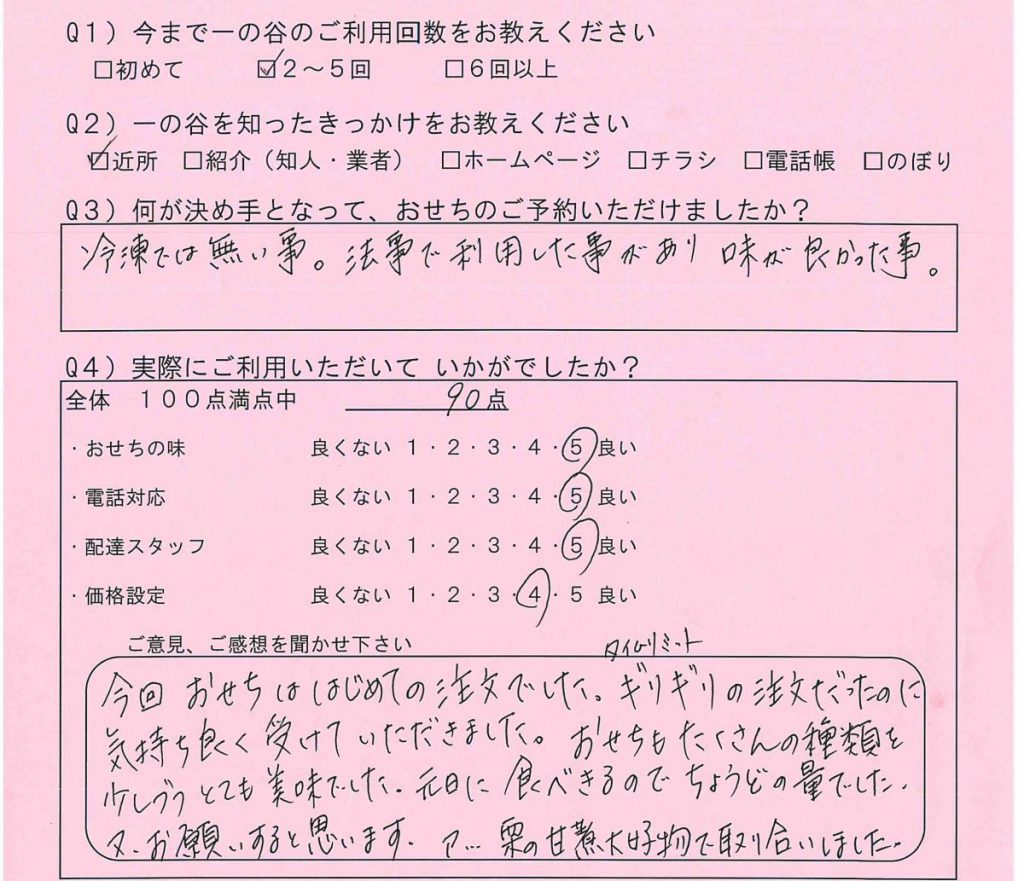 Q1）今まで一の谷のご利用回数をお教えください
□初めて ☑2～5回 □6回以上
Q2）一の谷を知ったきっかけをお教えください
☑近所 □紹介（知人・業者） □ホームページ □チラシ □電話帳 □のぼり
Q3）何が決め手となって、おせちのご予約いただけましたか？
冷凍では無い事。法事で利用した事があり 味が良かった事。
Q4）実際にご利用いただいて いかがでしたか？
全体 100点満点中 90点
・おせちの味 良くない 1・2・3・4・5 良い
・電話対応 良くない 1・2・3・4・5 良い
・配達スタッフ 良くない 1・2・3・4・5 良い
・価格設定 良くない 1・2・3・4・5 良い
ご意見、ご感想を聞かせ下さい
タイムリミット
今回 おせちははじめての注文でした。ギリギリの注文だったのに
気持ち良く受けていただきました。おせちもたくさんの種類を
少しづつとても美味でした。元日に食べきるのでちょうどの量でした。
又、お願いすると思います。 ア… 栗の甘煮大好物で取り合いしました。